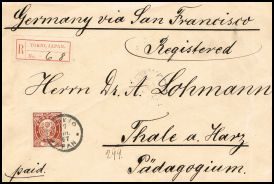 Germany via San Francisco
Registered
R TOKIO, JAPAN.
No. 68
Herrn Dr. A. Lohmann
Thale a. Harz
244.
paid. Pädagogium.